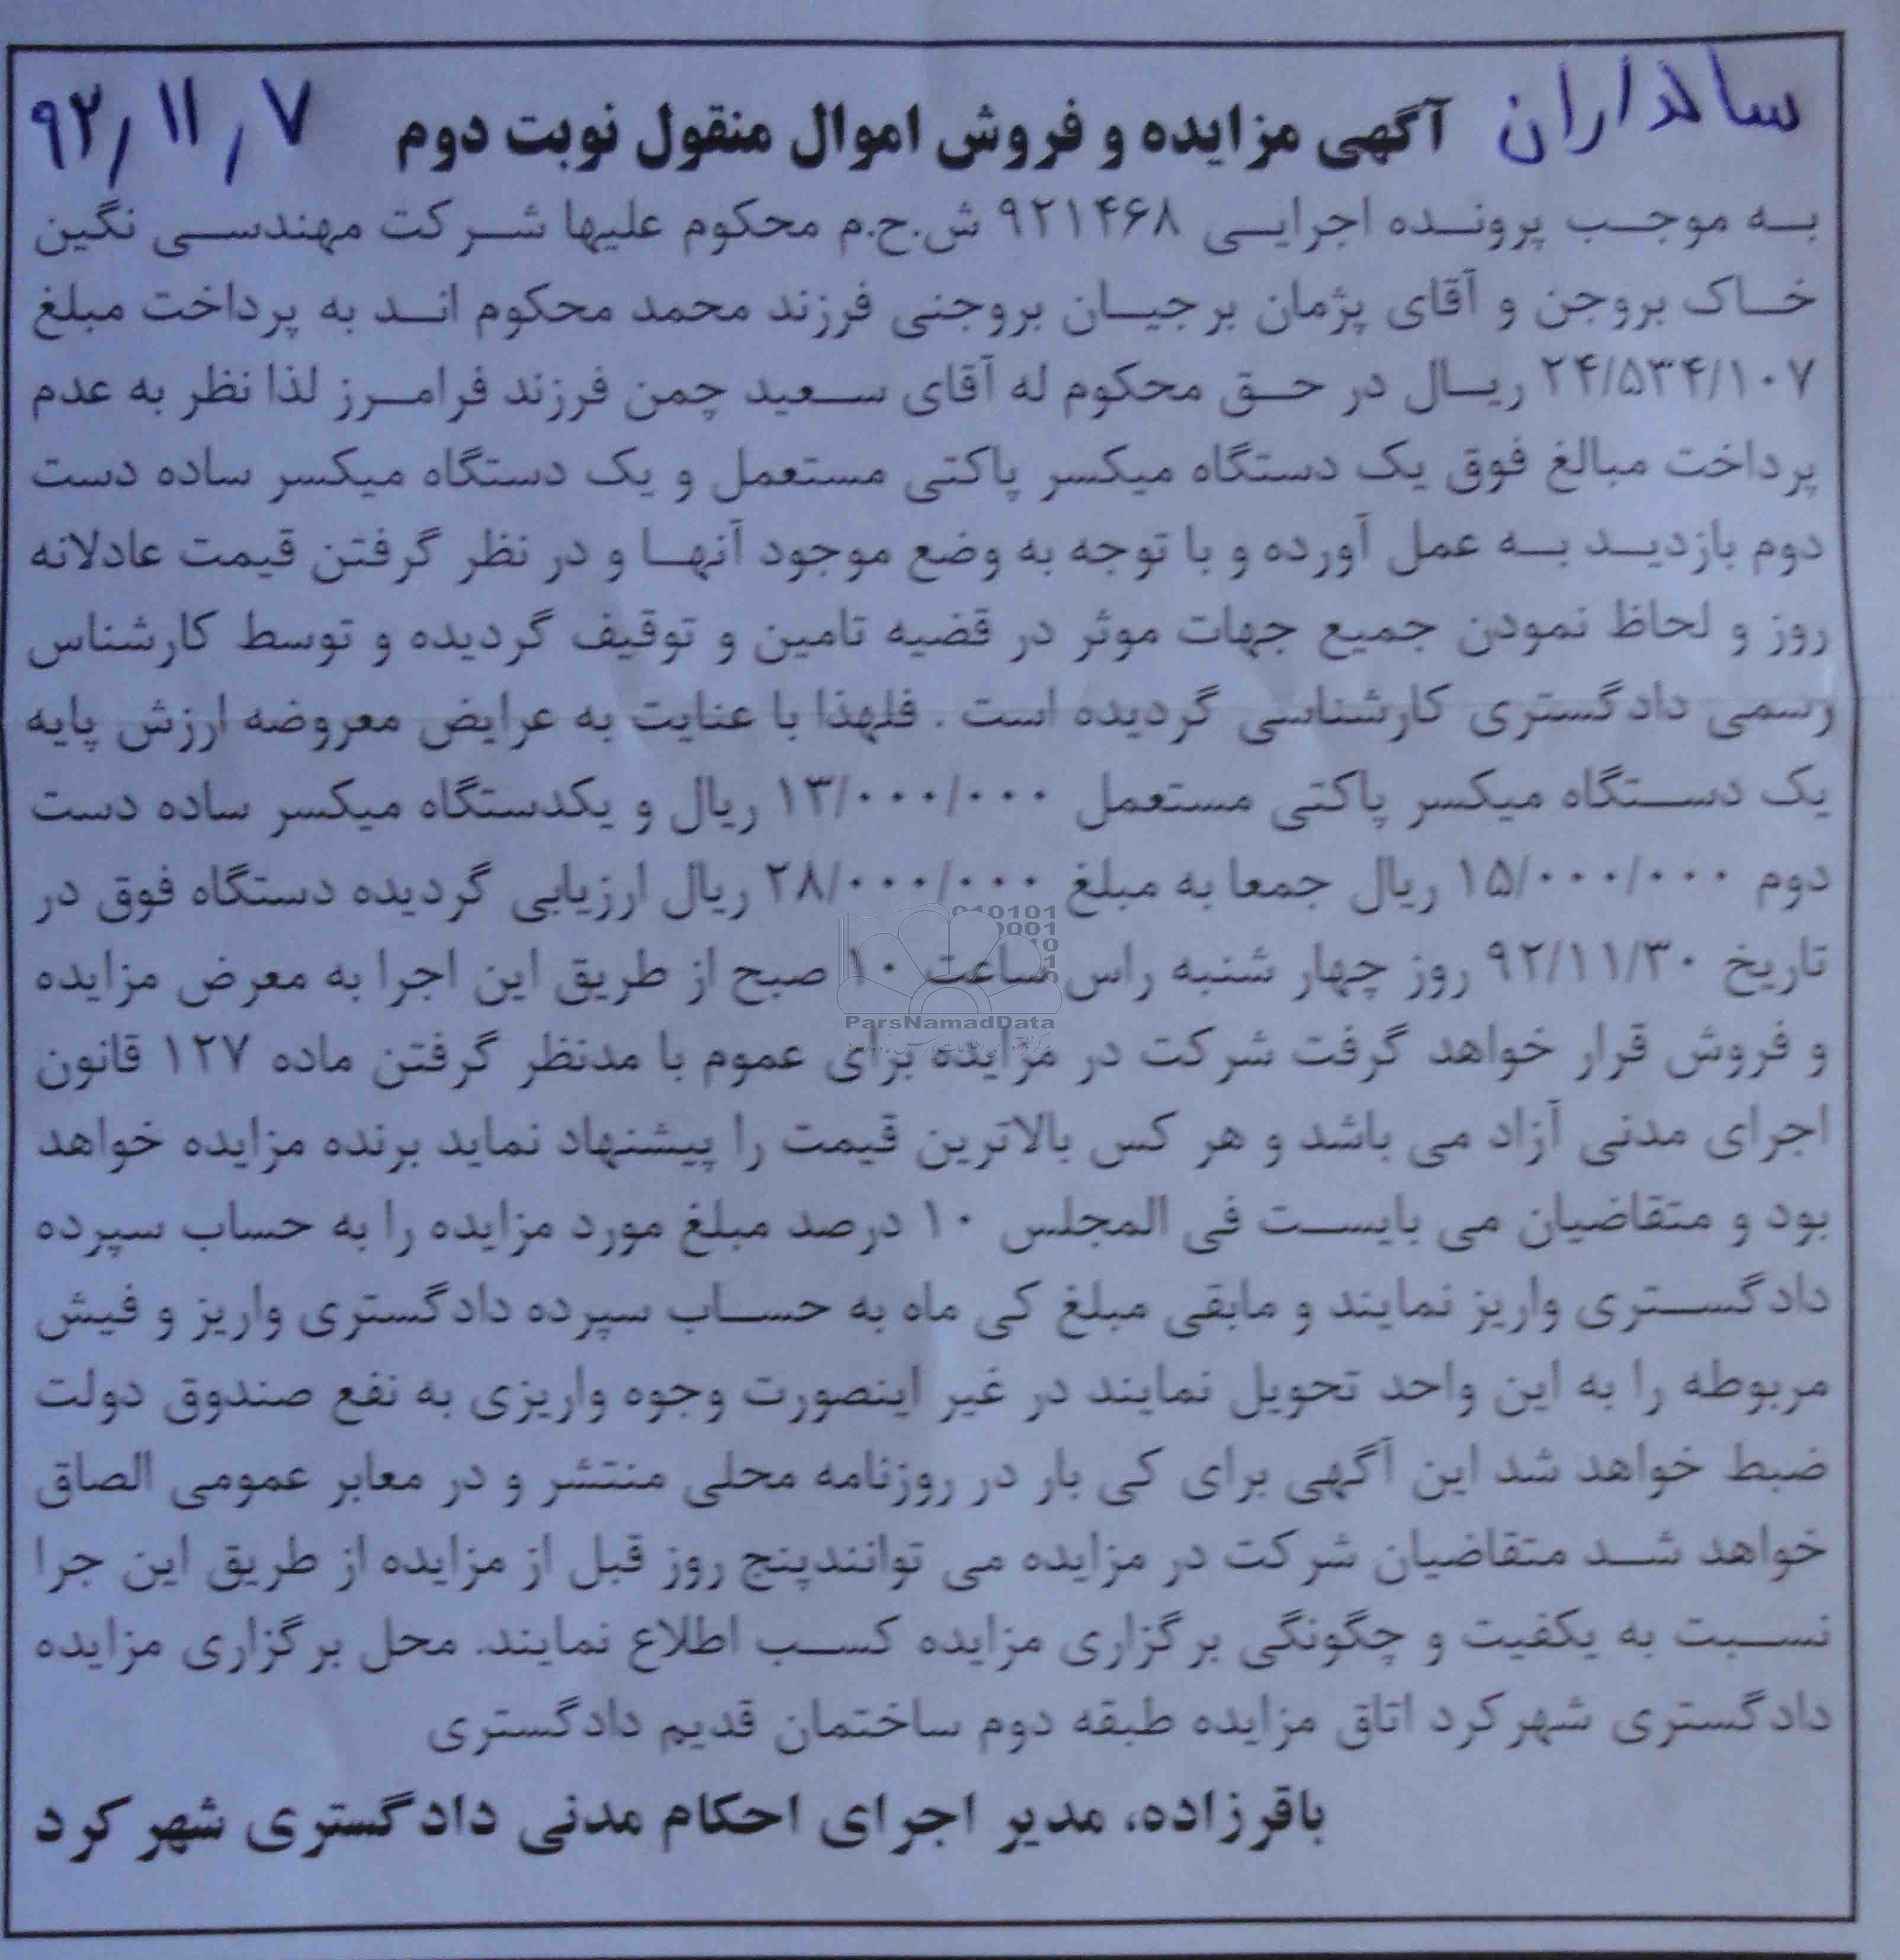 سالداران آگهی مزایده و فروش اموال منقول نوبت دوم ۹۲/۱۱/۷
به موجب پرونده اجرایی ۹۲۱۴۶۸ ش.ح.م محکوم علیها شرکت مهندسی نگین
خاک بروجن و آقای پژمان برجیان بروجنی فرزند محمد محکوم اند به پرداخت مبلغ
۲۴/۵۳۴/۱۰۷ ریال در حق محکوم له آقای سعید چمن فرزند فرامرز لذا نظر به عدم
پرداخت مبالغ فوق یک دستگاه میکسر پاکتی مستعمل و یک دستگاه میکسر ساده دست
دوم بازدید به عمل آورده و با توجه به وضع موجود آنها و در نظر گرفتن قیمت عادلانه
روز و لحاظ نمودن جمیع جهات موثر در قضیه تامین و توقیف گردیده و توسط کارشناس
رسمی دادگستری کارشناسی گردیده است . فلهذا با عنایت به عرایض معروضه ارزش پایه
یک دستگاه میکسر پاکتی مستعمل ۱۳/۰۰۰/۰۰۰ ریال و یکدستگاه میکسر ساده دست
دوم ۱۵/۰۰۰/۰۰۰ ریال جمعا به مبلغ ۲۸/۰۰۰/۰۰۰ ریال ارزیابی گردیده دستگاه فوق در
تاریخ ۹۲/۱۱/۳۰ روز چهار شنبه راس ساعت ۱۰ صبح از طریق این اجرا به معرض مزایده
ParsNamadData
و فروش قرار خواهد گرفت شرکت در مزایده برای عموم با مدنظر گرفتن ماده ۱۲۷ قانون
اجرای مدنی آزاد می باشد و هر کس بالاترین قیمت را پیشنهاد نماید برنده مزایده خواهد
بود و متقاضیان می بایست فی المجلس ۱۰ درصد مبلغ مورد مزایده را به حساب سپرده
دادگستری واریز نمایند و مابقی مبلغ کی ماه به حساب سپرده دادگستری واریز و فیش
مربوطه را به این واحد تحویل نمایند در غیر اینصورت وجوه واریزی به نفع صندوق دولت
ضبط خواهد شد این آگهی برای کی بار در روزنامه محلی منتشر و در معابر عمومی الصاق
خواهد شد متقاضیان شرکت در مزایده می توانندپنج روز قبل از مزایده از طریق این جرا
نسبت به یکفیت و چگونگی برگزاری مزایده کسب اطلاع نمایند. محل برگزاری مزایده
دادگستری شهرکرد اتاق مزایده طبقه دوم ساختمان قدیم دادگستری
باقرزاده، مدیر اجرای احکام مدنی دادگستری شهر کرد